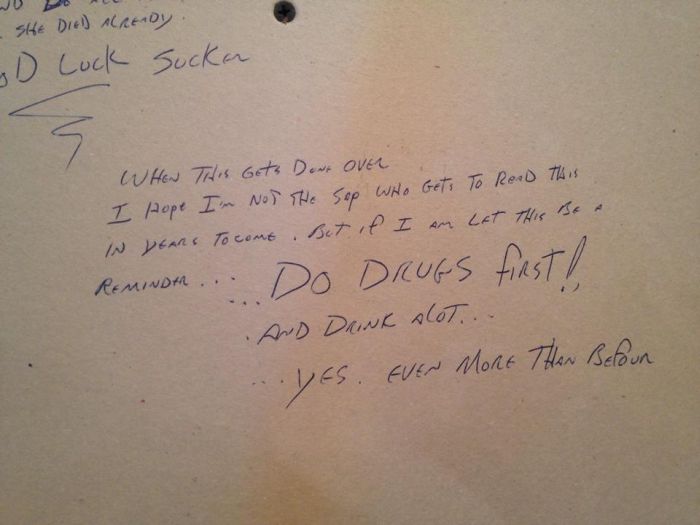 SHE DIED ALREADY.
D LUCK SUCKER
WHEN THIS GETS DONE OVER
I HOPE I'M NOT THE SAP WHO GETS TO READ THIS
IN YEARS TO COME. BUT IF I AM LET THIS BE A
REMINDER...
...DO DRUGS FIRST!!
. AND DRINK ALOT...
...YES. EVEN MORE THAN BEFOUR